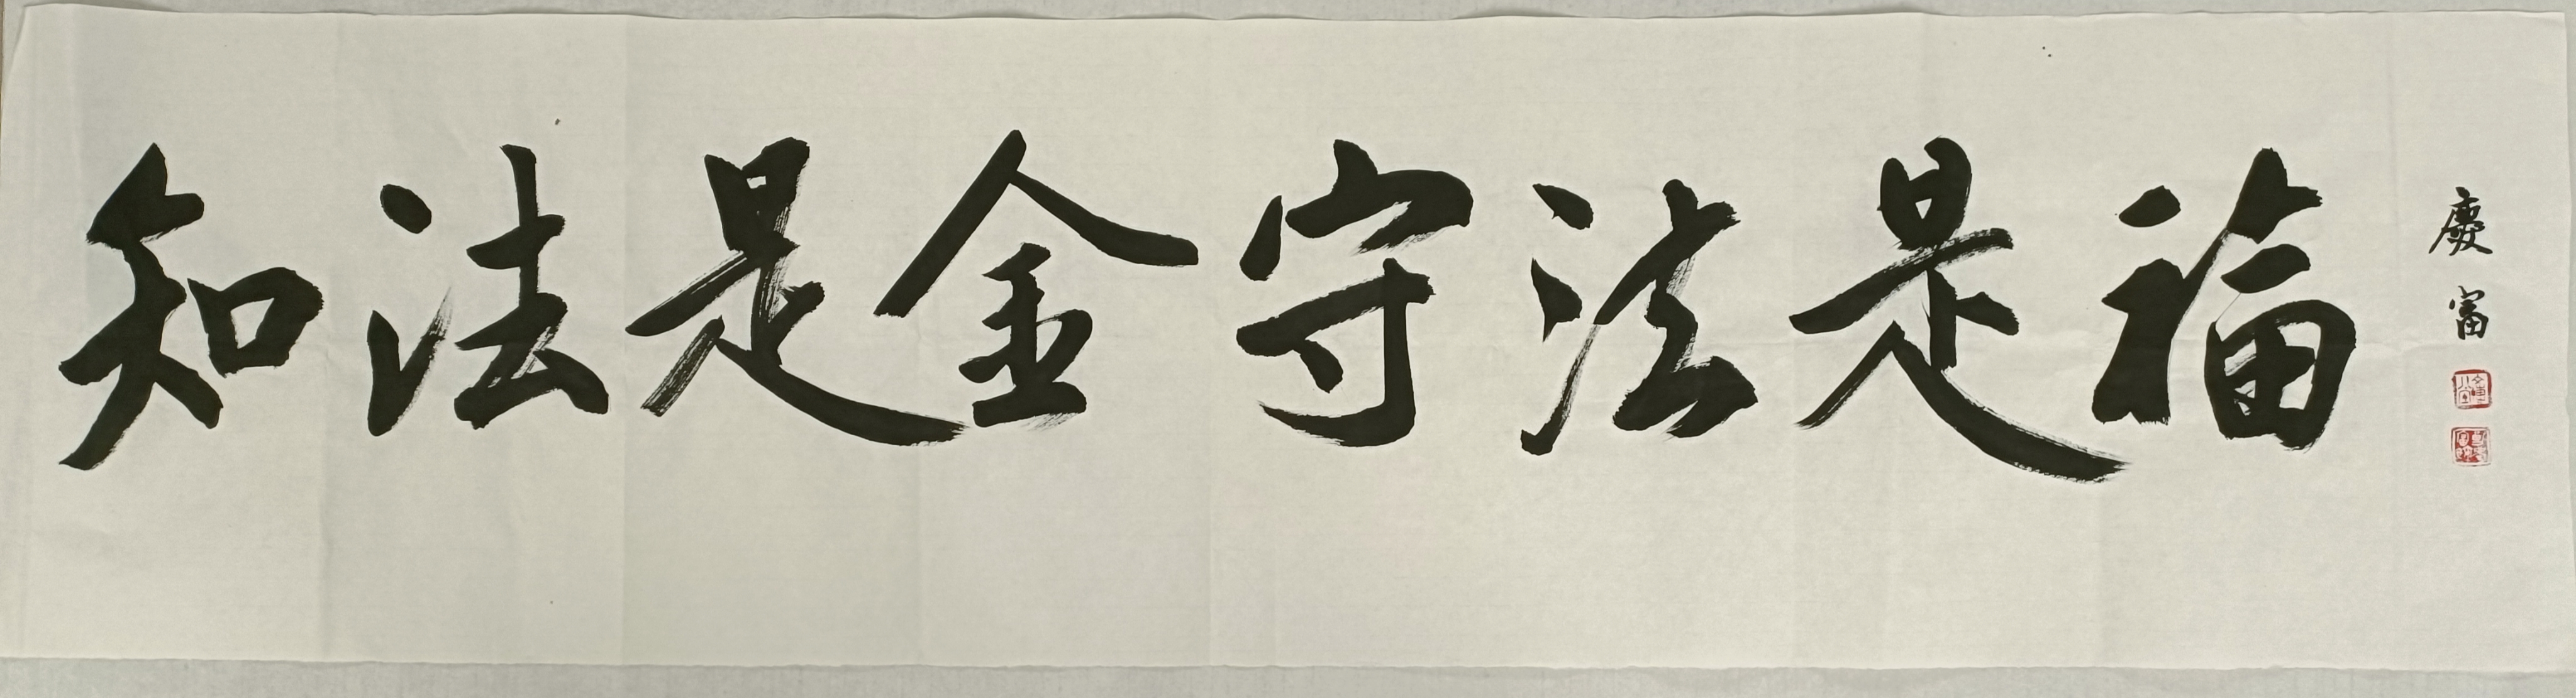 知法是金守法是福
慶富